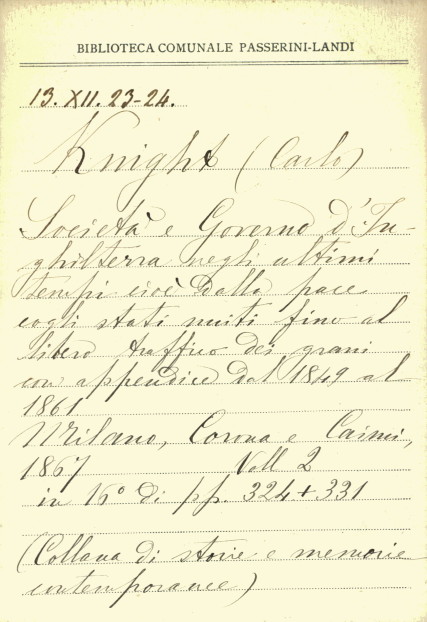 BIBLIOTECA COMUNALE PASSERINI-LANDI
13. XII. 23-24.
Knight (Carlo)
Società e Governo d'In-
ghilterra negli ultimi
tempi cioè dalla pace
cogli stati uniti fino al
libero traffico dei grani
con appendice dal 1849 al
1861
Milano, Corona e Caimi,
1867 Voll 2
in 16° di pp. 324+331
(Collana di storie e memorie
contemporanee)